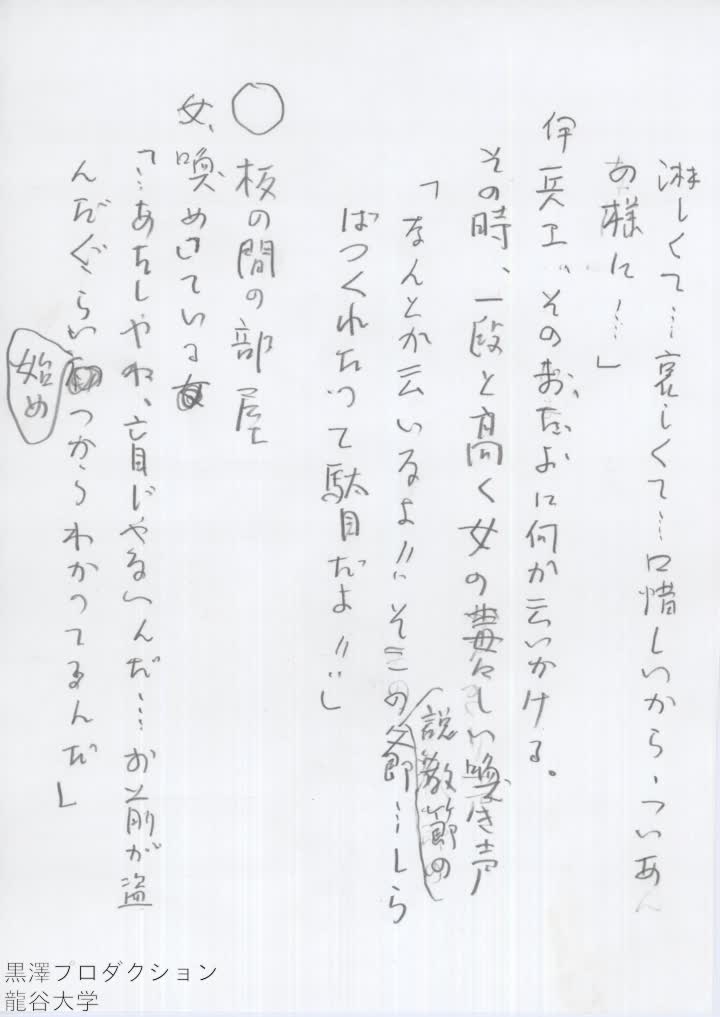 淋しくて…哀しくて…口惜しいから、ついあん
な様に…」
伊兵エ、そのおたよに何か云いかける。
その時、一段と高く女の毒々しい喚き声
「なんとか云いるよ!!そこの爺…しら
説教節の
ばっくれたって駄目だよ!!」
○ 板の間の部屋
女、喚めいている
「…あたしやね、盲じやないんだ…お前が盗
んだぐらい つからわかってるんだ」
始め
黒澤プロダクション
龍谷大学